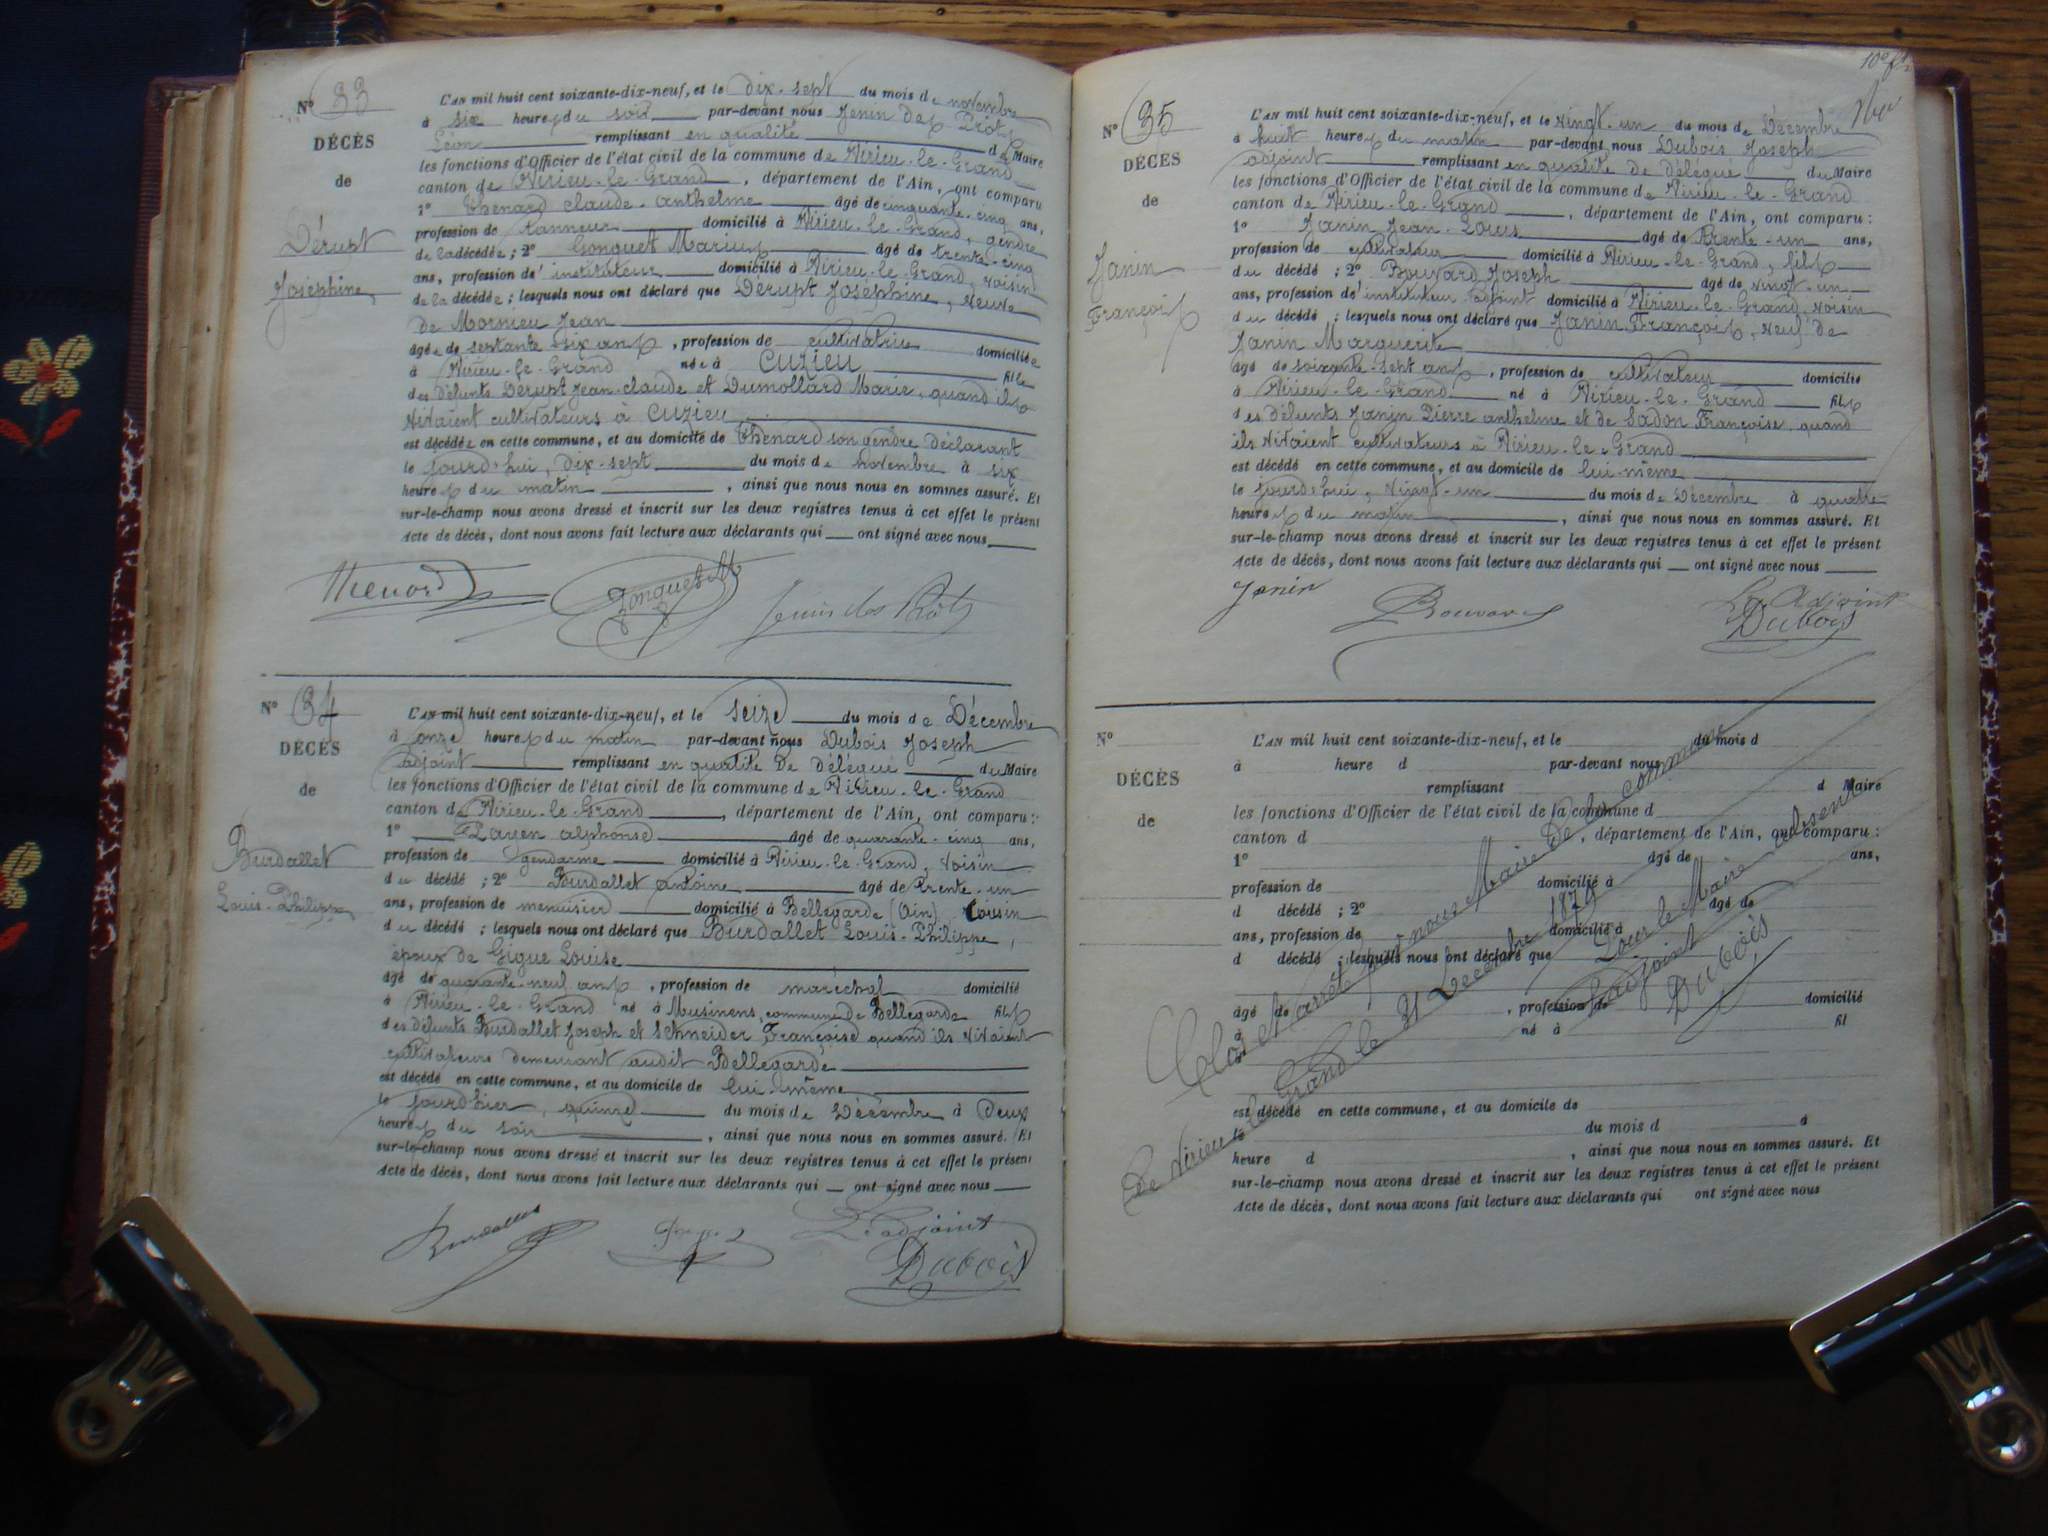 N° 33
DÉCÈS
de
Dérupt
Joséphine
L'AN mil huit cent soixante-dix-neuf, et le dix-sept du mois de novembre
à six heures du soir par-devant nous Jenin des Prots
Léon remplissant en qualité de Maire
les fonctions d'Officier de l'état civil de la commune de Virieu-le-Grand
canton de Virieu-le-Grand, département de l'Ain, ont comparu
1° Thenard claude-anthelme âgé de cinquante-cinq ans,
profession de tanneur domicilié à Virieu-le-Grand, gendre
de la décédée ; 2° Gonguet Marius âgé de trente-cinq
ans, profession d'instituteur domicilié à Virieu-le-Grand, voisin
de la décédée ; lesquels nous ont déclaré que Dérupt Joséphine, veuve
de Mornieu Jean
âgée de septante six ans, profession de cultivatrice domiciliée
à Virieu-le-Grand née à Cuzieu fille
des défunts Dérupt Jean-claude et Dumollard Marie, quand ils
vivaient cultivateurs à Cuzieu
est décédée en cette commune, et au domicile de Thenard son gendre déclarant
le jourd'hui, dix-sept du mois de novembre à six
heures du matin, ainsi que nous nous en sommes assuré. Et
sur-le-champ nous avons dressé et inscrit sur les deux registres tenus à cet effet le présent
Acte de décès, dont nous avons fait lecture aux déclarants qui ont signé avec nous
Thenard Gonguet M Jenin des Prots
N° 34
DÉCÈS
de
Burdallet
Louis-Philippe
L'AN mil huit cent soixante-dix-neuf, et le seize du mois de Décembre
à onze heures du matin par-devant nous Dubois Joseph
adjoint remplissant en qualité de délégué du Maire
les fonctions d'Officier de l'état civil de la commune de Virieu-le-Grand
canton de Virieu-le-Grand, département de l'Ain, ont comparu :
1° alphonse âgé de quarante-cinq ans,
profession de gendarme domicilié à Virieu-le-Grand, voisin
du décédé ; 2° Burdallet Antoine âgé de Trente-un
ans, profession de menuisier domicilié à Bellegarde (Ain) voisin
du décédé ; lesquels nous ont déclaré que Burdallet Louis-Philippe,
époux de Gigue Louise
âgé de quarante-neuf ans, profession de maréchal domicilié
à Virieu-le-Grand né à Musinens, commune de Bellegarde fils
des défunts Burdallet Joseph et Schneider Françoise quand ils vivaient
cultivateurs demeurant audit Bellegarde
est décédé en cette commune, et au domicile de lui-même
le jourd'hier, quinze du mois de Décembre à Deux
heures du soir, ainsi que nous nous en sommes assuré. Et
sur-le-champ nous avons dressé et inscrit sur les deux registres tenus à cet effet le présent
Acte de décès, dont nous avons fait lecture aux déclarants qui ont signé avec nous
Burdallet L'adjoint
Dubois
N° 35
DÉCÈS
de
Janin
François
L'AN mil huit cent soixante-dix-neuf, et le vingt-un du mois de Décembre
à huit heures du matin par-devant nous Dubois Joseph
adjoint remplissant en qualité de délégué du Maire
les fonctions d'Officier de l'état civil de la commune de Virieu-le-Grand
canton de Virieu-le-Grand, département de l'Ain, ont comparu :
1° Janin Jean-Louis âgé de Trente-un ans,
profession de cultivateur domicilié à Virieu-le-Grand, fils
du décédé ; 2° Bouvard Joseph âgé de vingt-un
ans, profession d'instituteur adjoint domicilié à Virieu-le-Grand, voisin
du décédé ; lesquels nous ont déclaré que Janin François, veuf de
Janin Marguerite
âgé de soixante-sept ans, profession de cultivateur domicilié
à Virieu-le-Grand né à Virieu-le-Grand fils
des défunts Janin Pierre anthelme et de Sadon Françoise, quand
ils vivaient cultivateurs à Virieu-le-Grand
est décédé en cette commune, et au domicile de lui-même
le jourd'hui, vingt-un du mois de Décembre à quatre
heures du matin, ainsi que nous nous en sommes assuré. Et
sur-le-champ nous avons dressé et inscrit sur les deux registres tenus à cet effet le présent
Acte de décès, dont nous avons fait lecture aux déclarants qui ont signé avec nous
Janin Bouvard L'Adjoint
Dubois
N°
DÉCÈS
de
L'AN mil huit cent soixante-dix-neuf, et le du mois d
à heure d par-devant nous
remplissant d Maire
les fonctions d'Officier de l'état civil de la commune d
canton d , département de l'Ain, ont comparu :
1° âgé de ans,
profession de domicilié à
d décédé ; 2° âgé de
ans, profession de domicilié à
d décédé ; lesquels nous ont déclaré que
âgé de , profession de domicilié
à né à fil
est décédé en cette commune, et au domicile de
le du mois d à
heure d , ainsi que nous nous en sommes assuré. Et
sur-le-champ nous avons dressé et inscrit sur les deux registres tenus à cet effet le présent
Acte de décès, dont nous avons fait lecture aux déclarants qui ont signé avec nous
Clos et arrêté par nous Maire de la commune
de Virieu le Grand le 31 Décembre 1879
Pour le Maire absent
L'adjoint
Dubois